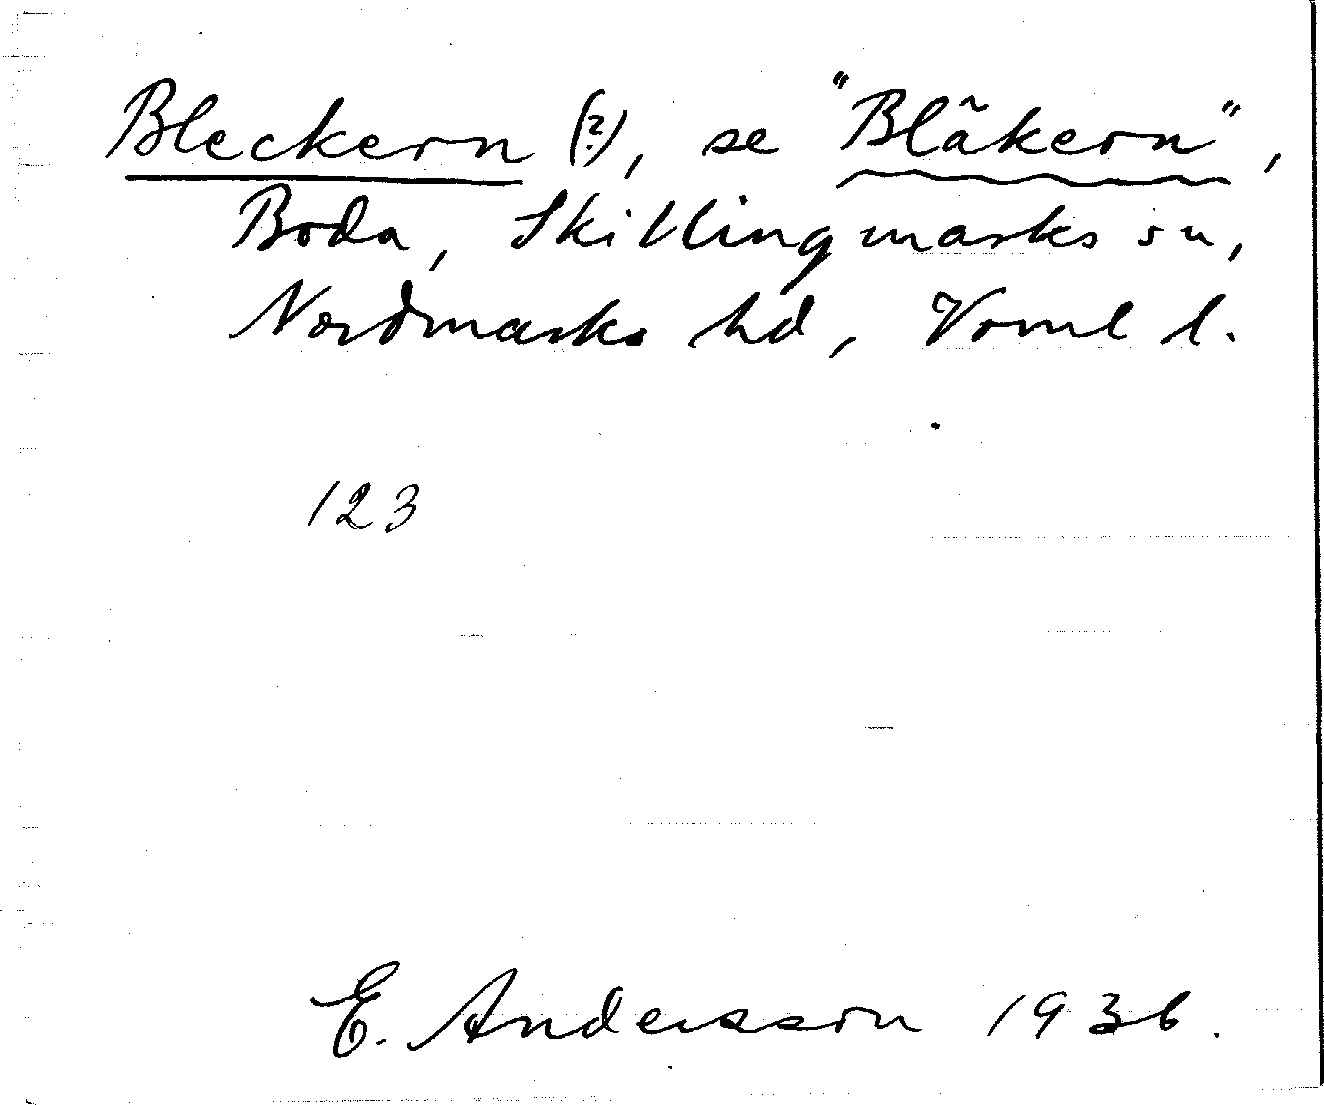 Bleckern (?), se "Bläkern",
Boda, Skillingmarks sn,
Nordmarks hd, Vrml l.
123
E. Andersson 1936.